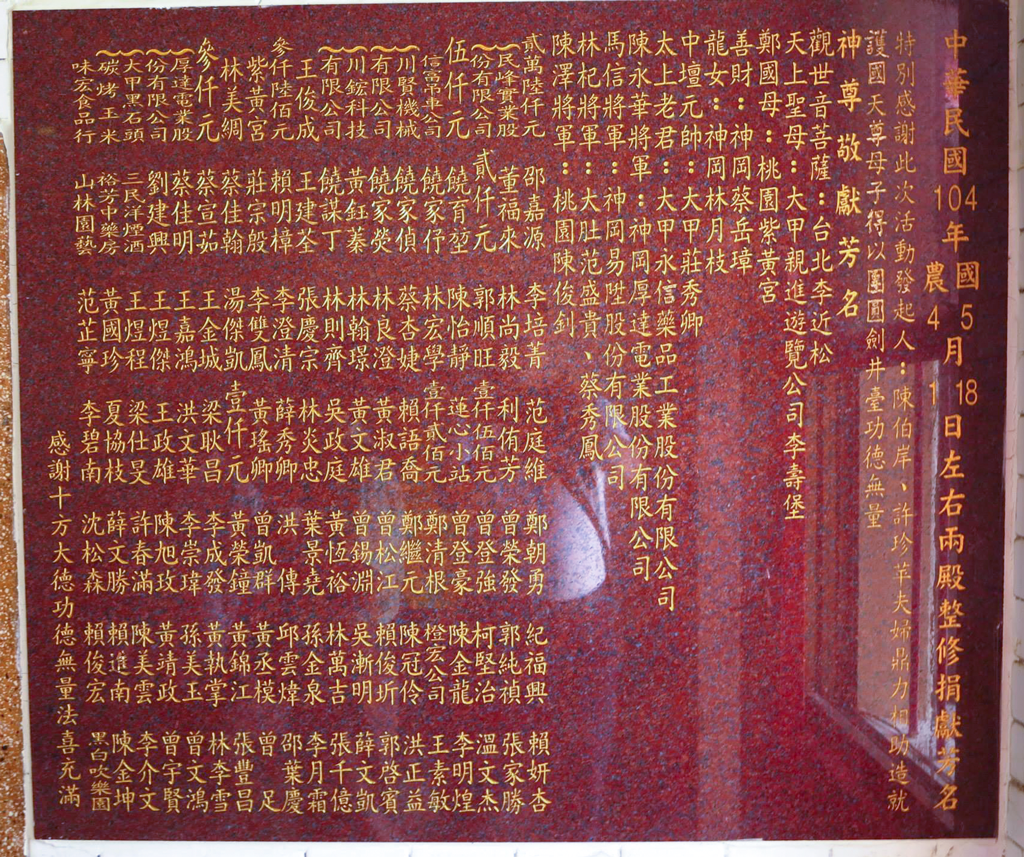 中華民國104年國農5 4月18 1日左右兩殿整修捐獻芳名
特別感謝此次活動發起人：陳伯岸、許珍苹夫婦鼎力相助造就
護國天尊母子得以團圓劍井臺功德無量
神尊敬獻芳名
觀世音菩薩：台北李近松
天上聖母：大甲親進遊覽公司李壽堡
鄭國母：桃園紫黃宮
善財：神岡蔡岳璋
龍女：神岡林月枝
中壇元帥：大甲莊秀卿
太上老君：大甲永信藥品工業股份有限公司
陳永華將軍：神岡厚達電業股份有限公司
馬信將軍：神岡易陞股份有限公司
林杞將軍：大肚范盛貴、蔡秀鳳
陳澤將軍：桃園陳俊釗
貳萬陸仟元 邵嘉源 李培菁 范庭維 鄭朝勇 紀福興 賴妍杏
民峰實業股份有限公司 董福來 林尚毅 利侑芳 曾榮發 郭純禎 張家勝
貳仟元 郭順旺 壹仟伍佰元 曾登強 柯堅治 溫文杰
伍仟元 饒育堃 陳怡靜 蓮心小站 曾登豪 陳金龍 李明煌
信富吊車公司 饒家伃 林宏學 壹仟貳佰元 鄭清根 橙宏公司 王素敏
川賢機械有限公司 饒家偵 蔡杏婕 賴語喬 鄭繼元 陳冠伶 洪正益
饒家熒 林良澄 黃淑君 曾松江 賴俊圻 郭啓賓
川鋐科技有限公司 黃鈺蓁 林翰璟 黃文雄 曾錫淵 吳漸明 薛文凱
饒謀丁 林則齊 吳政庭 黃恆裕 林萬吉 張千億
王俊成 王建荃 張慶宗 林炎忠 葉景堯 孫金泉 李月霜
參仟陸佰元 賴明樟 李澄清 薛秀卿 洪傳 邱雲煒 邵葉慶
紫黃宮 莊宗殷 李雙鳳 黃瑤卿 曾凱群 黃丞模 曾足
林美綢 蔡佳翰 湯傑凱 壹仟元 黃榮鐘 黃錦江 張豐昌
參仟元 蔡宣茹 王金城 梁耿昌 李成發 黃執掌 林李雪
厚達電業股份有限公司 蔡佳明 王嘉鴻 洪文華 李崇瑋 孫美玉 曾文鴻
劉建興 王煜傑 王政雄 陳旭玫 黃靖政 曾宇賢
大甲黑石頭碳烤玉米 三民洋煙酒 王煜程 梁仕旻 許春滿 陳美雲 李介文
裕芳中藥房 黃國珍 夏協枝 薛文勝 賴進南 陳金坤
味宏食品行 山林園藝 范芷寧 李碧南 沈松森 賴俊宏 黑白吹樂園
感謝十方大德功德無量法喜充滿